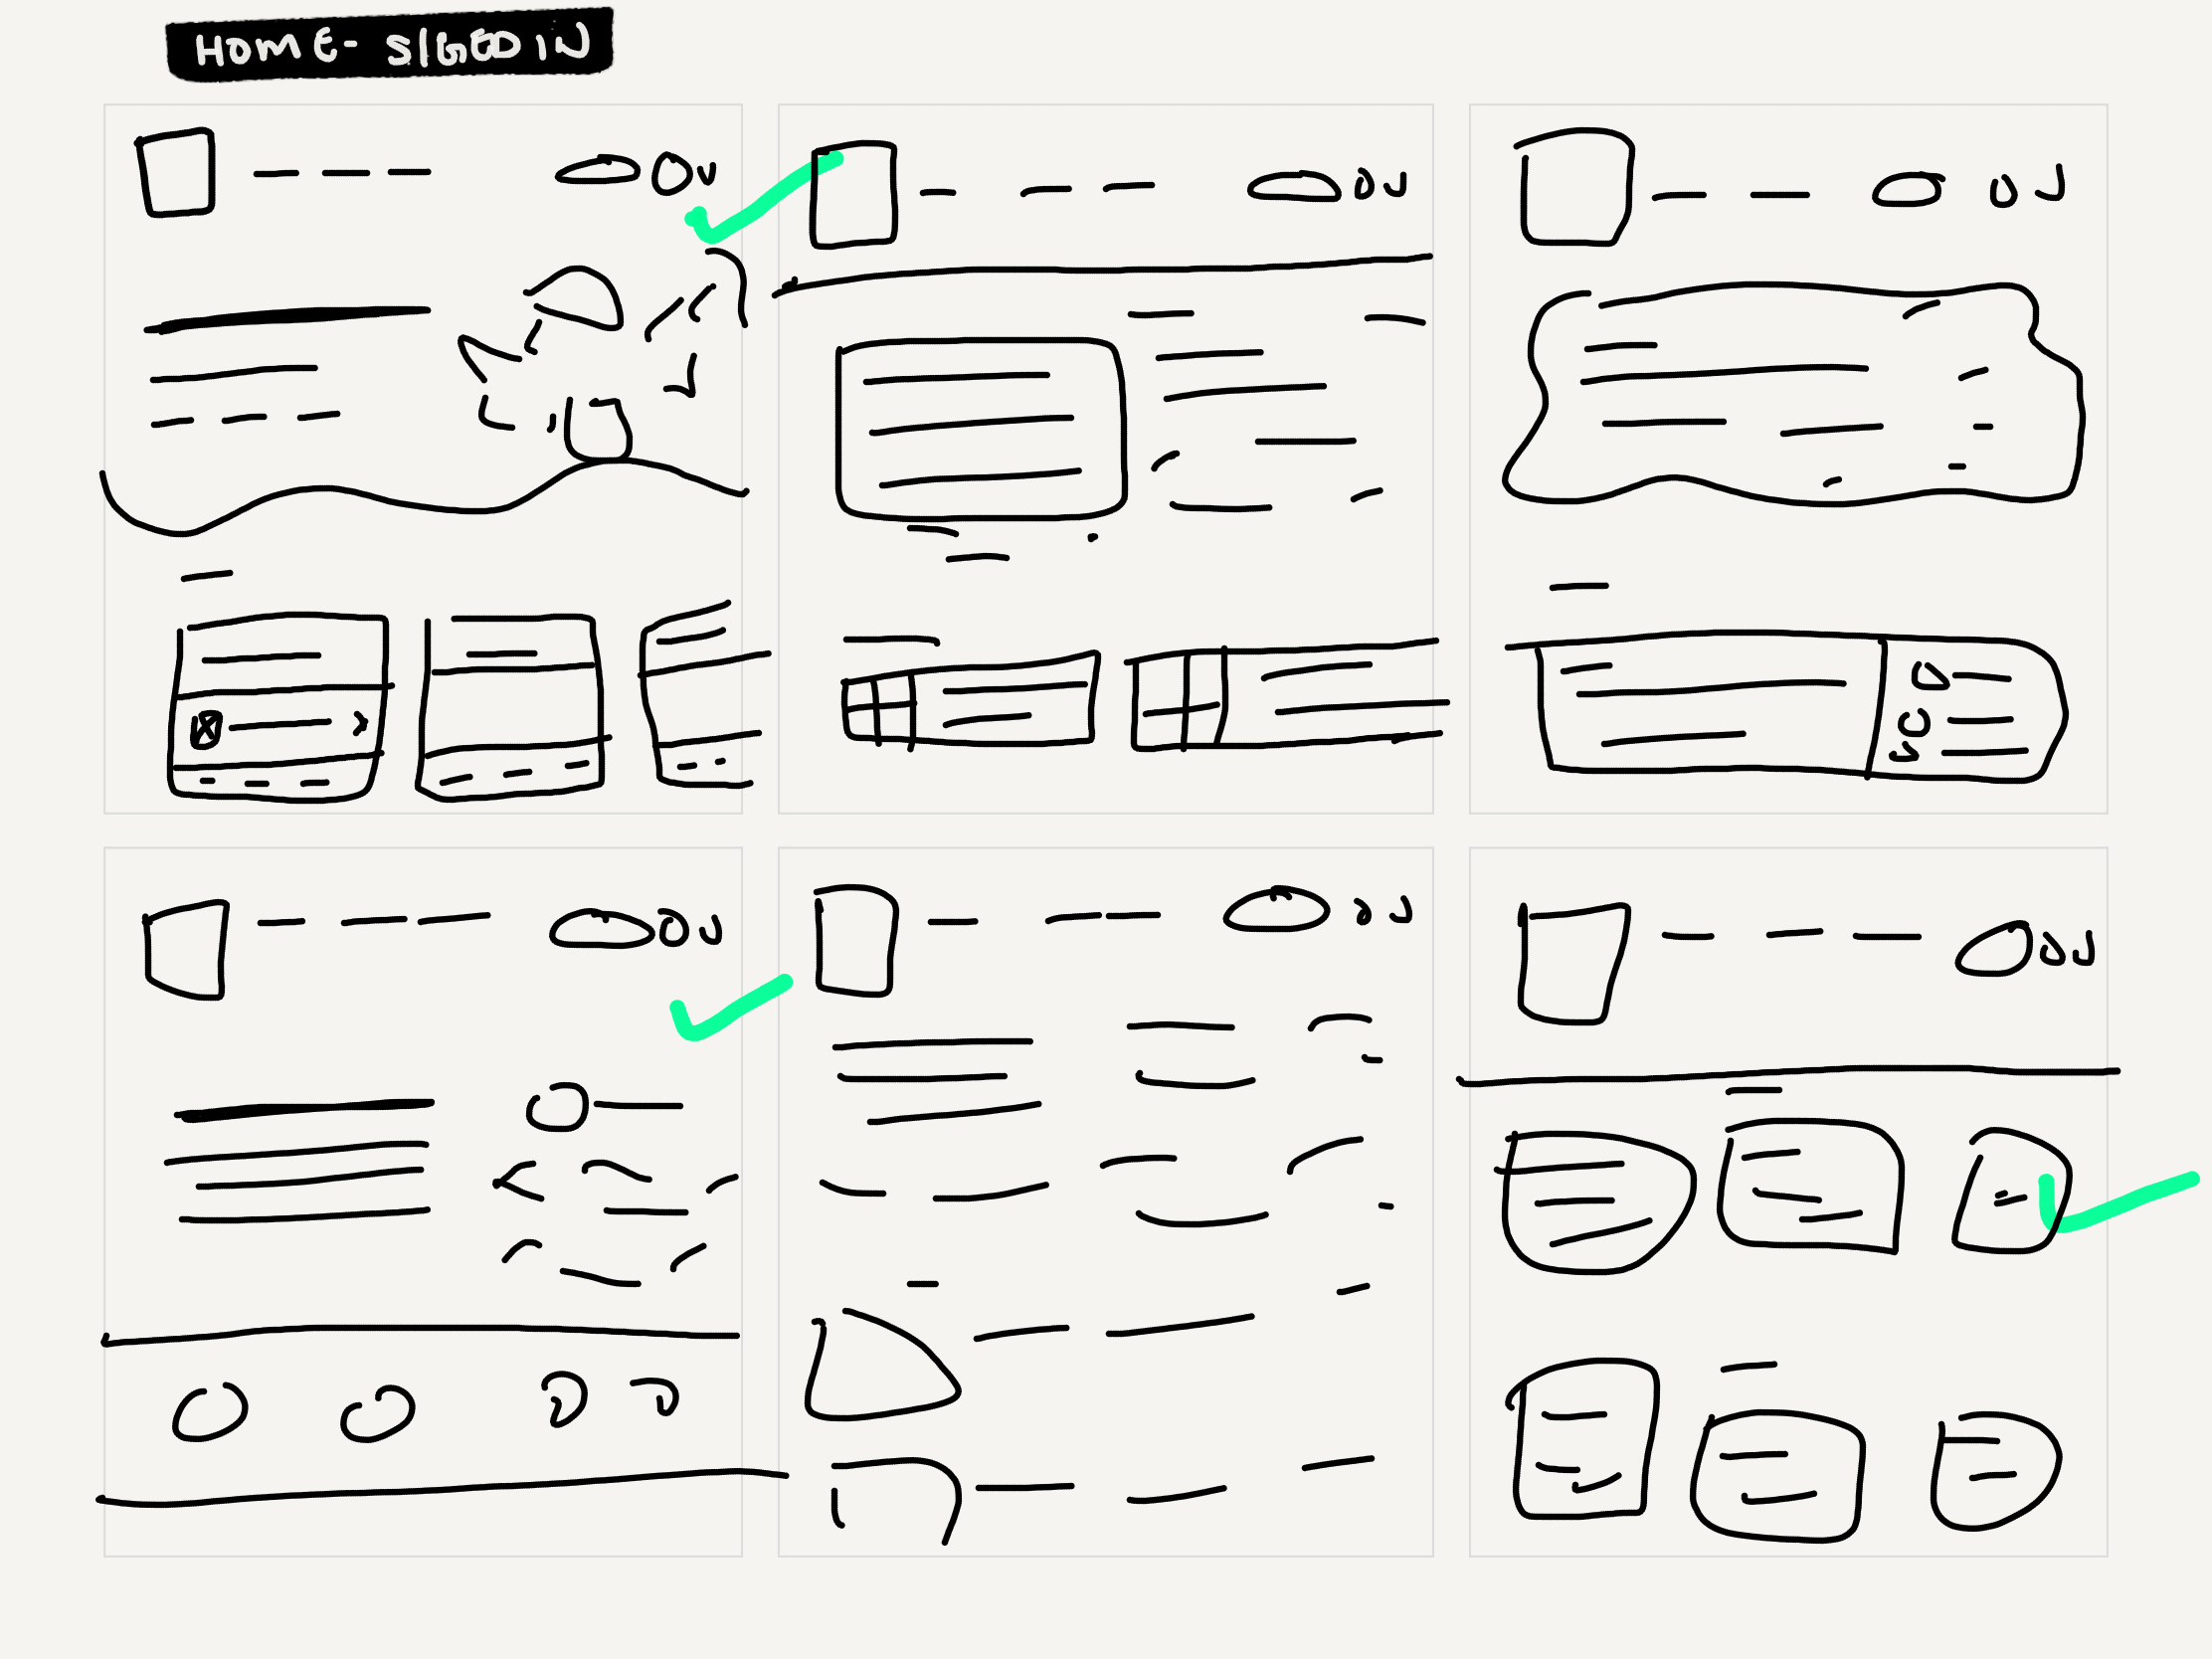 HOME- SIGED IN